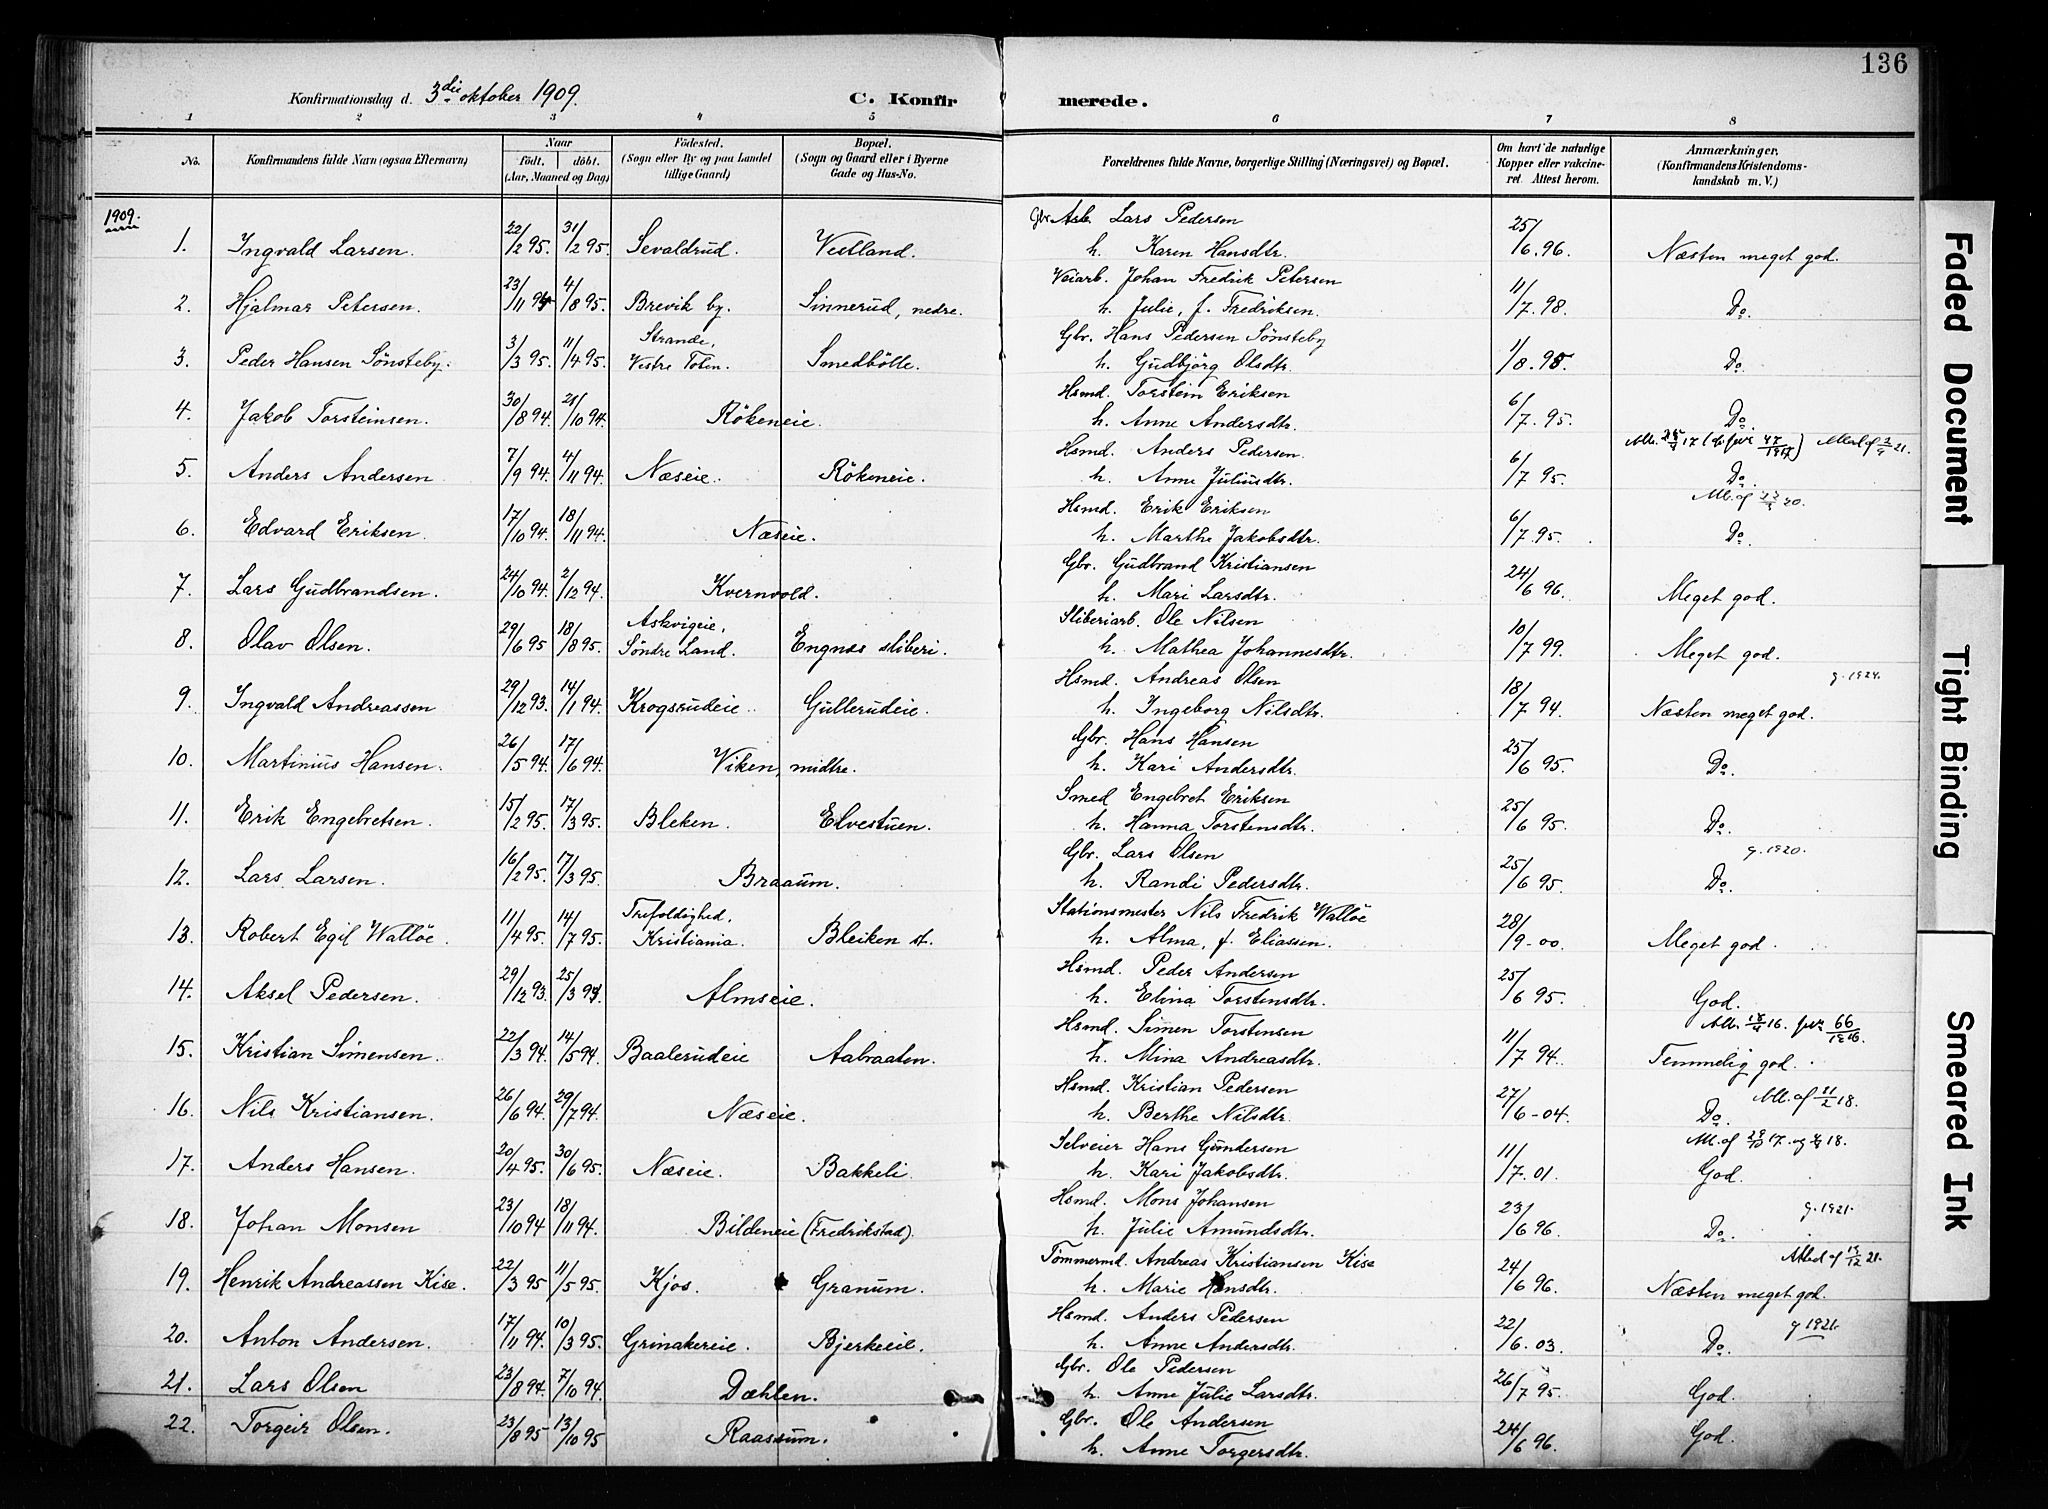 136
Konfirmationsdag d. 3die oktober 1909.
C. Konfir merede.
1 2 3 4 5 6 7 8
No.
Konfirmandens fulde Navn (ogsaa Efternavn)
Naar
født. døbt.
(Aar, Maaned og Dag)
Fødested.
(Sogn eller By og paa Landet
tillige Gaard)
Bopæl.
(Sogn og Gaard eller i Byerne
Gade og Hus-No.
Forældrenes fulde Navne, borgerlige Stilling (Næringsvei) og Bopæl.
Om havt de naturlige
Kopper eller vakcine-
ret. Attest herom.
Anmærkninger,
(Konfirmandens Kristendoms-
kundskab m. V.)
1909.
Gbr. Arb. Lars Pedersen
1. Ingvald Larsen. 22/12 95. 31/12 95. Sevaldrud. Vestland. h. Karen Hansdtr. 25/6. 96. Næsten meget god.
Veiarb. Johan Fredrik Petersen
2. Hjalmar Petersen. 23/11 94 4/8 95. Brevik by. Sinnerud, nedre. h. Julie, f. Fredriksen. 11/7. 98. Do.
Strande, Gbr. Hans Pedersen Sønsteby
3. Peder Hansen Sønsteby. 3/3 95. 11/4 95. Vestre Toten. Smedbölle. h. Gudbjörg Olsdtr. 1/8. 95. Do.
Hsmd. Torstein Eriksen
4. Jakob Torsteinsen. 30/8 94. 21/10 94. Rökeneie. h. Anne Andersdtr. 6/7. 95. Do.
Hsmd. Anders Pedersen.
5. Anders Andersen 7/9 94. 4/11 94. Næseie. Rökeneie. h. Anne Juliusdtr. 6/7 95. Do.
Hsmd. Erik Eriksen
6. Edvard Eriksen. 17/10 94. 18/11 94. Næseie. h. Marthe Jakobsdtr. 6/7. 95. Do.
Gbr. Gudbrand Kristiansen
7. Lars Gudbrandsen. 24/10 94. 2/12 94. Kvernvold. h. Mari Larsdtr. 24/6 96. Meget god.
Askvigeie, Sliberiarb. Ole Nilsen
8. Olav Olsen. 29/6 95 18/8 95. Söndre Land. Engnes sliberi. h. Mathea Johannesdtr. 10/7 99. Meget god.
Hsmd. Andreas Olsen g. 1924.
9. Ingvald Andreassen 29/12 93. 14/1 94. Krogsrudeie. Gullerudeie. h. Ingeborg Nilsdtr. 18/7 94. Næsten meget god.
Gbr. Hans Hansen
10. Martinius Hansen. 26/5 94. 17/6 94. Viken, midtre. h. Kari Andersdtr. 25/6 95. Do.
Smed Engebret Eriksen
11. Erik Engebretsen. 15/2 95. 17/3 95. Bleken. Elvestuen. h. Hanna Torstensdtr. 25/6 95. Do.
Gbr. Lars Olsen g. 1920.
12. Lars Larsen. 16/2 95. 17/3 95. Braaum. h. Randi Pedersdtr. 25/6 95. Do.
Trefoldighed, Stationsmester Nils Fredrik Wallöe
13. Robert Egil Wallöe. 11/4 95. 14/7 95. Kristiania. Bleiken st. h. Alma, f. Eliassen. 28/9-00. Meget god.
Hsmd. Peder Andersen
14. Aksel Pedersen. 29/12 93. 25/3 94. Almseie. h. Elina Torstensdtr. 25/6 95. God.
Hsmd. Simen Torstensen
15. Kristian Simensen. 22/3 94. 14/5 94. Baalerudeie Aabraaten. h. Mina Andreasdtr. 11/7 94. Temmelig god.
Hsmd. Kristian Pedersen
16. Nils Kristiansen. 26/6 94. 29/7 94. Næseie. h. Berthe Nilsdtr. 27/6-04. Do.
Selveier Hans Gundersen
17. Anders Hansen. 20/4 95. 30/6 95. Næseie. Bakkeli. h. Kari Jakobsdtr. 11/7. 01. God.
Hsmd. Mons Johansen g. 1921.
18. Johan Monsen 23/10 94 18/11 94. Bildeneie (Fredrikstad). h. Julie Amundsdtr. 23/6 96. Do.
Tømmermd. Andreas Kristiansen Kise
19. Henrik Andreassen Kise. 22/3 95 11/5 95. Kjos. Granum. h. Marie Hansdtr. 24/6 96. Næsten meget god.
Hsmd. Anders Pedersen g 1921.
20. Anton Andersen. 17/11 94. 10/3 95. Grinakereie. Bjerkeeie. h. Anne Andersdtr. 22/6. 03. Do.
Gbr. Ole Pedersen
21. Lars Olsen 23/8 94. 7/10 94. Dæhlen. h. Anne Julie Larsdtr. 26/7 95. God.
Gbr. Ole Andersen
22. Torgeir Olsen. 23/8 95 13/10 95 Raassum. h. Anne Torgersdtr. 24/6 96. God.
Faded Document
Tight Binding
Smeared Ink